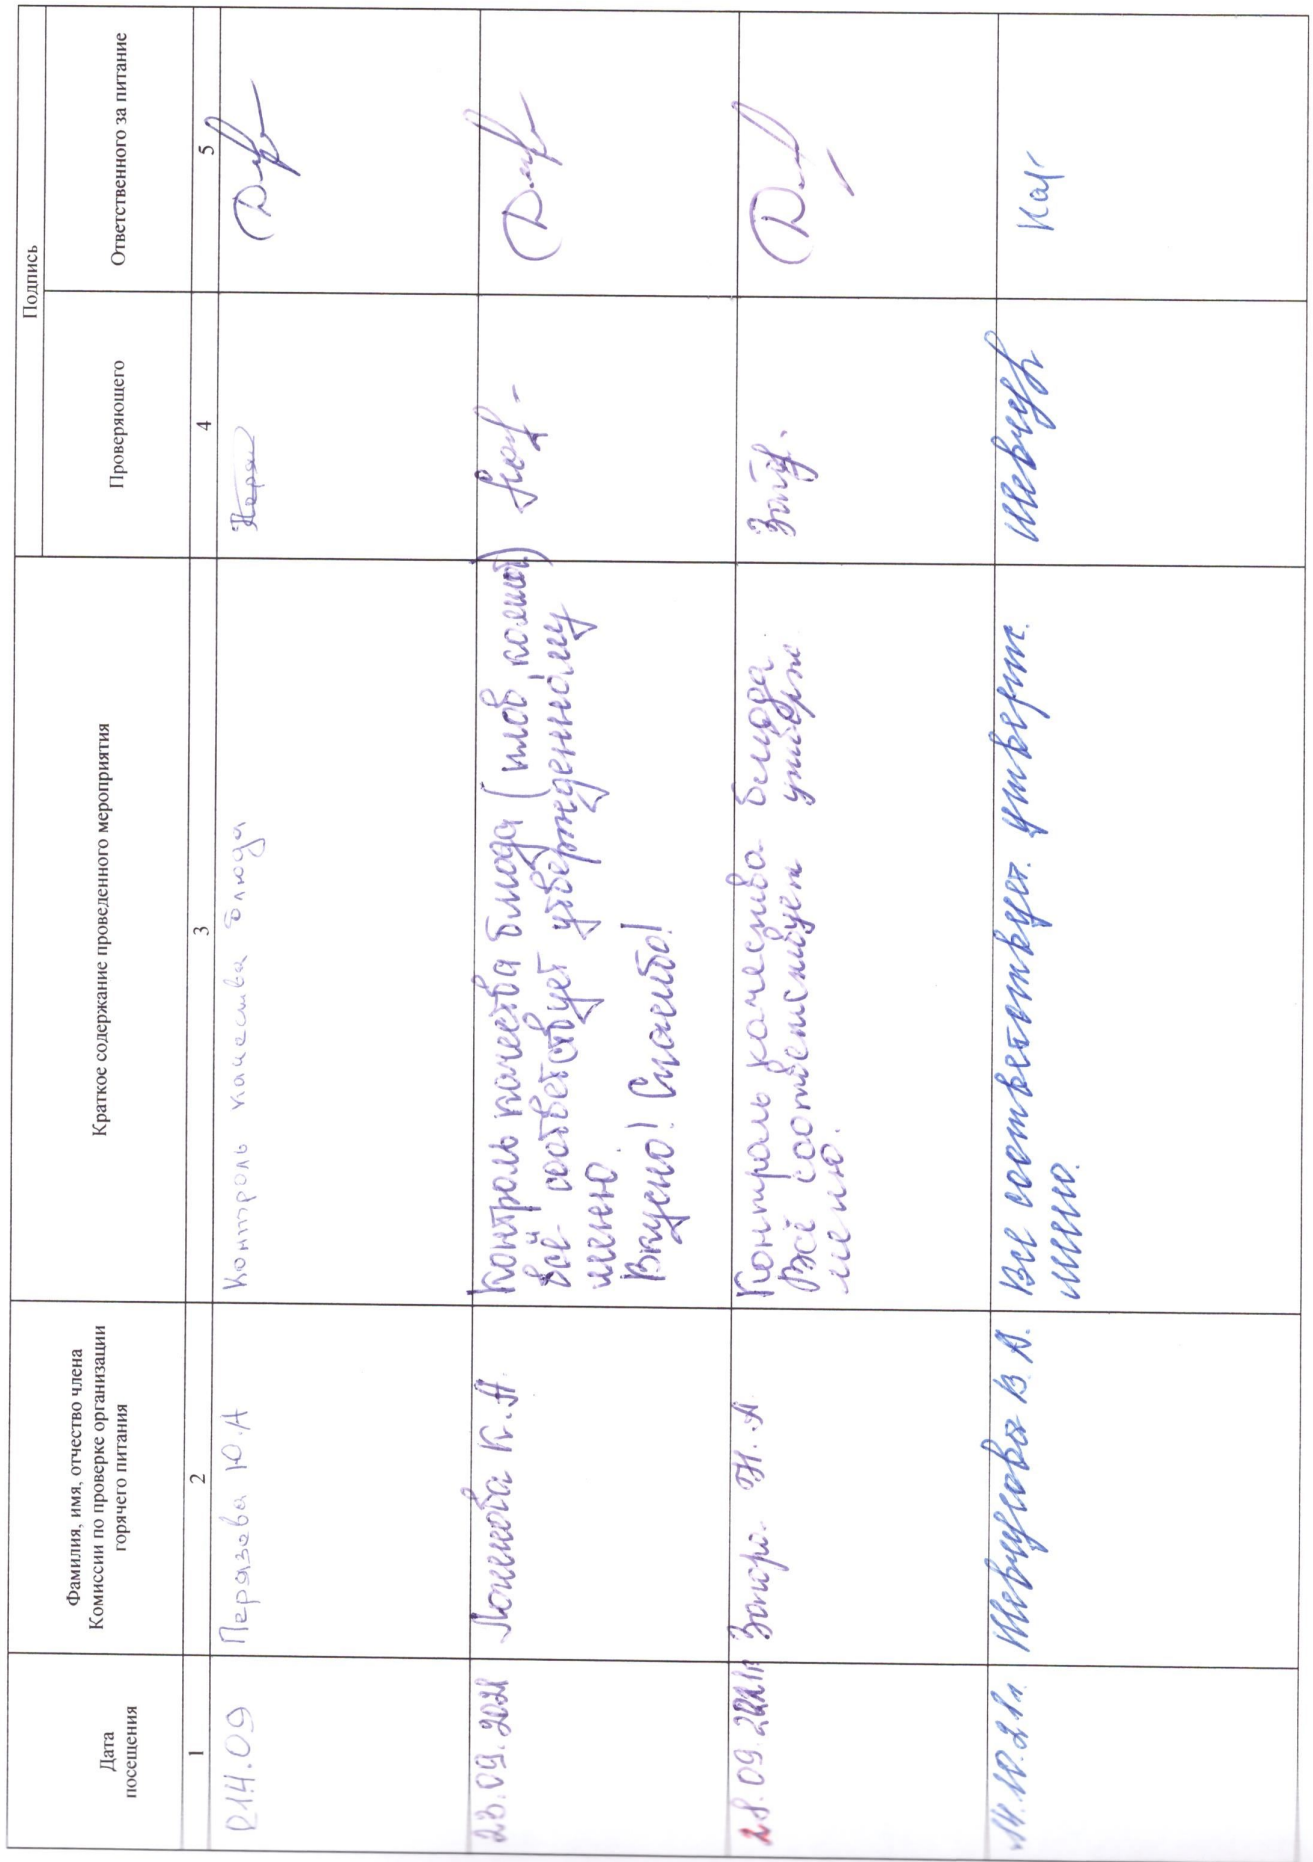 Дата
посещения
Фамилия, имя, отчество члена
Комиссии по проверке организации
горячего питания
Краткое содержание проведенного мероприятия
Подпись
Проверяющего
Ответственного за питание
1
2
3
4
5
14.09
Перязева Ю.А
Контроль качества блюда
23.09.2021
К.А.
Контроль качества блюда (плов, компот)
всё соответствует утвержденному
меню
Вкусно! Спасибо!
28.09.2021
Н.А
Контроль качества блюда.
Всё соответствует утверж
меню.
14.10.21г.
Шевцова В.А.
Все соответствует. утверт.
меню.